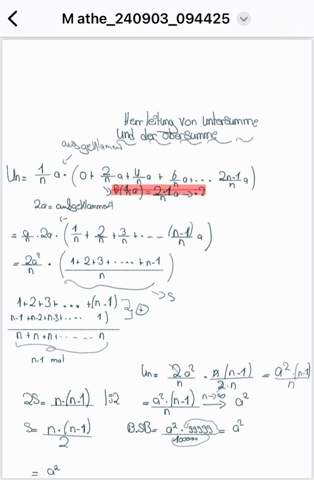 Mathe_240903_094425
Herrleitung von Untersumme
und der obersumme
ausgeklammert
Un = 1/n a · (0 + 2/n a + 4/n a + 6/n a + ... 2n-1/n a)
2a = ausgeklammert
= a/n · 2a · (1/n + 2/n + 3/n + - - - (n-1)/n a)
= 2a²/n · (1+2+3+....+n-1/n)
→ S
1+2+3+ ... +(n-1)
n-1+n-2+n-3+.... 1) } +
n+n+n+.....n
n-1 mal
Un = 2a²/n · n(n-1)/2·n = a²·(n-1)/n
2S = n·(n-1) |:2
= a²·(n-1)/n n→∞ → a²
S = n·(n-1)/2
B.SB = a²·99999/100000 = a²
= a²